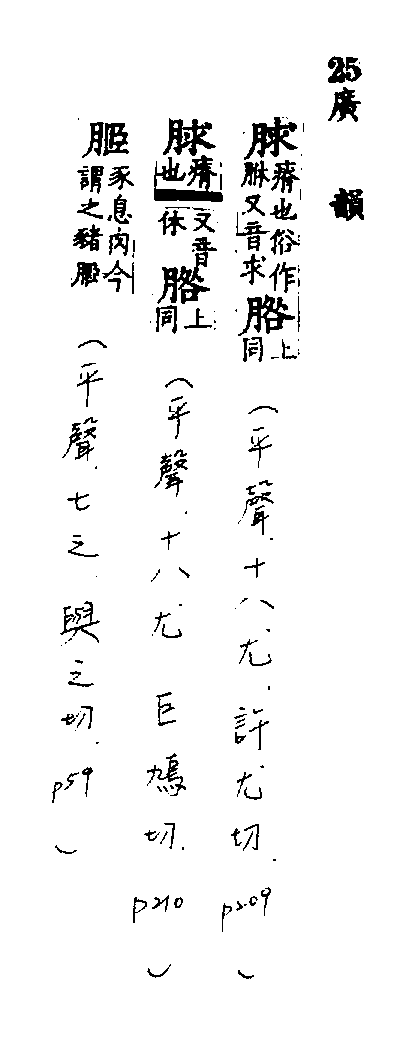 25廣韻
脙瘠也俗作又音求上同（平聲．十八尤．許尤切．p209）
脙瘠也又音休上同（平聲．十八尤 巨鳩切．p210）
豕息肉今謂之豬（平聲．七之．與之切．p59）